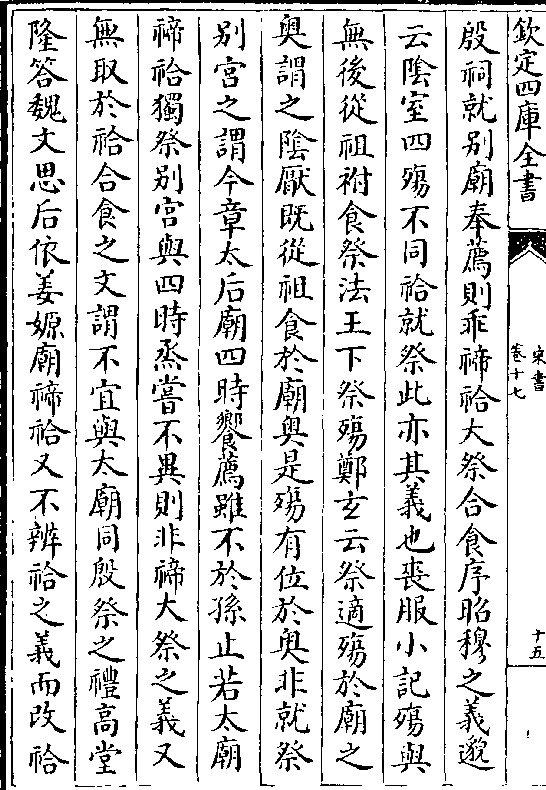 欽定四庫全書
宋書
卷十七
十五
殷祠就别廟奉薦則乖禘祫大祭合食序昭穆之義邈
云陰室四殤不同祫就祭此亦其義也喪服小記殤與
無後從祖祔食祭法王下祭殤鄭玄云祭適殤於廟之
奥謂之陰厭既從祖食於廟奥是殤有位於奥非就祭
别宫之謂今章太后廟四時饗薦雖不於孫止若太廟
禘祫獨祭别宫與四時烝嘗不異則非禘大祭之義又
無取於祫合食之文謂不宜與太廟同殷祭之禮高堂
隆答魏文思后依姜嫄廟禘祫又不辨祫之義而改祫